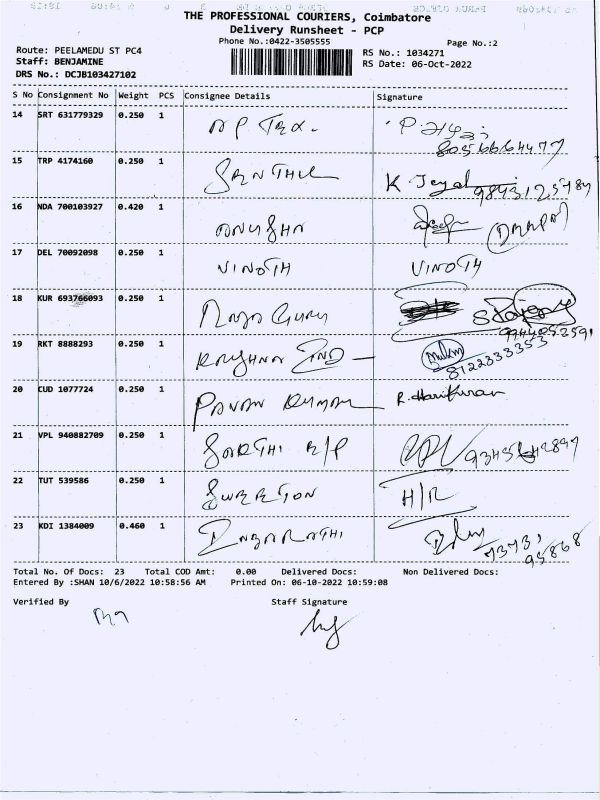 THE PROFESSIONAL COURIERS, Coimbatore
Delivery Runsheet - PCP
Phone No.:0422-3505555
Page No.:2
Route: PEELAMEDU ST PC4
RS No.: 1034271
Staff: BENJAMINE
RS Date: 06-Oct-2022
DRS No.: DCJB103427102
S No Consignment No Weight PCS Consignee Details Signature
14 SRT 631779329 0.250 1
8056664477
15 TRP 4174160 0.250 1 SENTHIL K
9843125784
16 NDA 700103927 0.420 1 ANUSHA
17 DEL 70092098 0.250 1 VINOTH VINOTH
18 KUR 693766093 0.250 1 RAJA GURU
9944053591
19 RKT 8888293 0.250 1 KRISHNA IND
8122333353
20 CUD 1077724 0.250 1 PAVAN KUMAR R. Harikiran
21 VPL 940882709 0.250 1
22 TUT 539586 0.250 1 H/R
23 KDI 1384009 0.460 1
Total No. Of Docs: 23 Total COD Amt: 0.00 Delivered Docs: Non Delivered Docs:
Entered By :SHAN 10/6/2022 10:58:56 AM Printed On: 06-10-2022 10:59:08
Verified By Staff Signature